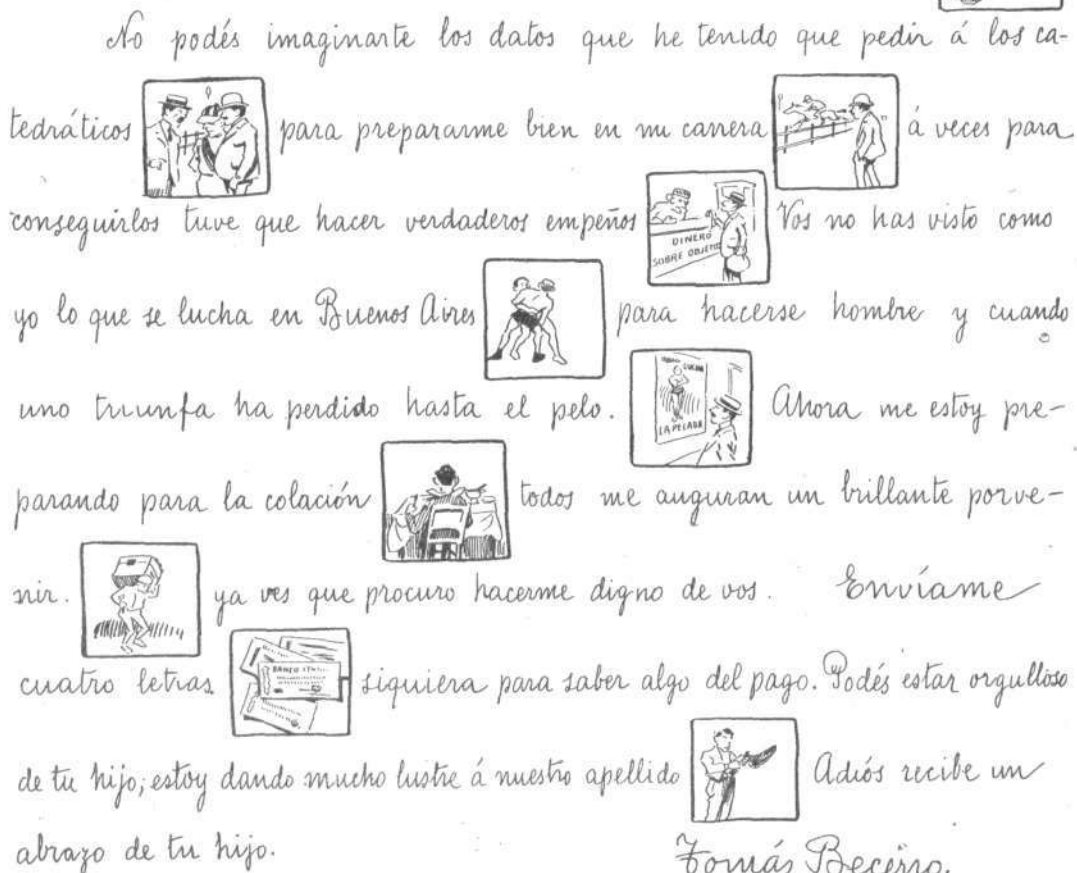 No podés imaginarte los datos que he tenido que pedir á los ca-
tedráticos para prepararme bien en mi carrera á veces para
conseguirlos tuve que hacer verdaderos empeños DINERO SOBRE OBJETO Vos no has visto como
yo lo que se lucha en Buenos Aires para hacerse hombre y cuando
uno triunfa ha perdido hasta el pelo. LUCHA LA PELADA Ahora me estoy pre-
parando para la colación todos me auguran un brillante porve-
nir. ya ves que procuro hacerme digno de vos. Envíame
cuatro letras BANCO siquiera para saber algo del pago. Podés estar orgulloso
de tu hijo; estoy dando mucho lustre á nuestro apellido Adiós recibe un
abrazo de tu hijo.
Tomás Becerro.